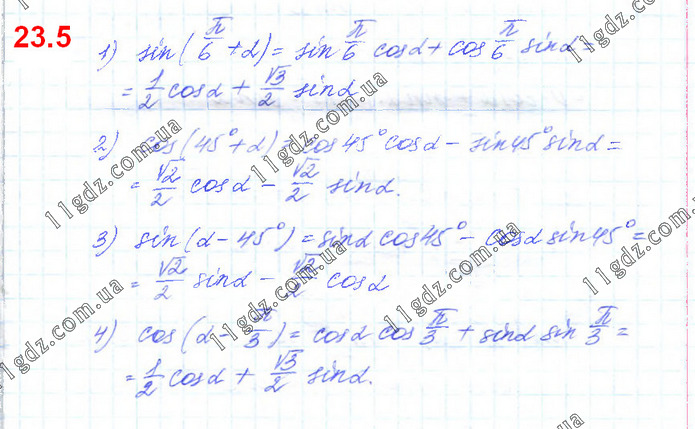 23.5
1) sin(π/6 + α) = sin π/6 cosα + cos π/6 sinα =
= 1/2 cosα + √3/2 sinα
2) cos(45° + α) = cos45° cosα − sin45° sinα =
= √2/2 cosα − √2/2 sinα.
3) sin(α − 45°) = sinα cos45° − cosα sin45° =
= √2/2 sinα − √2/2 cosα
4) cos(α − π/3) = cosα cos π/3 + sinα sin π/3 =
= 1/2 cosα + √3/2 sinα.
11gdz.com.ua
11gdz.com.ua
11gdz.com.ua
11gdz.com.ua
11gdz.com.ua
11gdz.com.ua
11gdz.com.ua